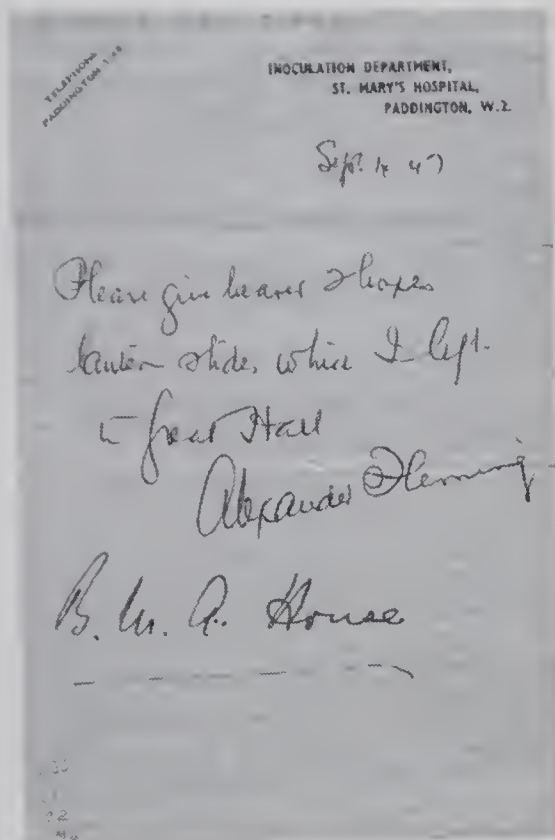 TELEPHONE
PADDINGTON
INOCULATION DEPARTMENT,
ST. MARY'S HOSPITAL,
PADDINGTON, W.2.
Sept. 47
Please give bearer 2 boxes
lantern slides which I left
in Great Hall
Alexander Fleming
B. M. A. House